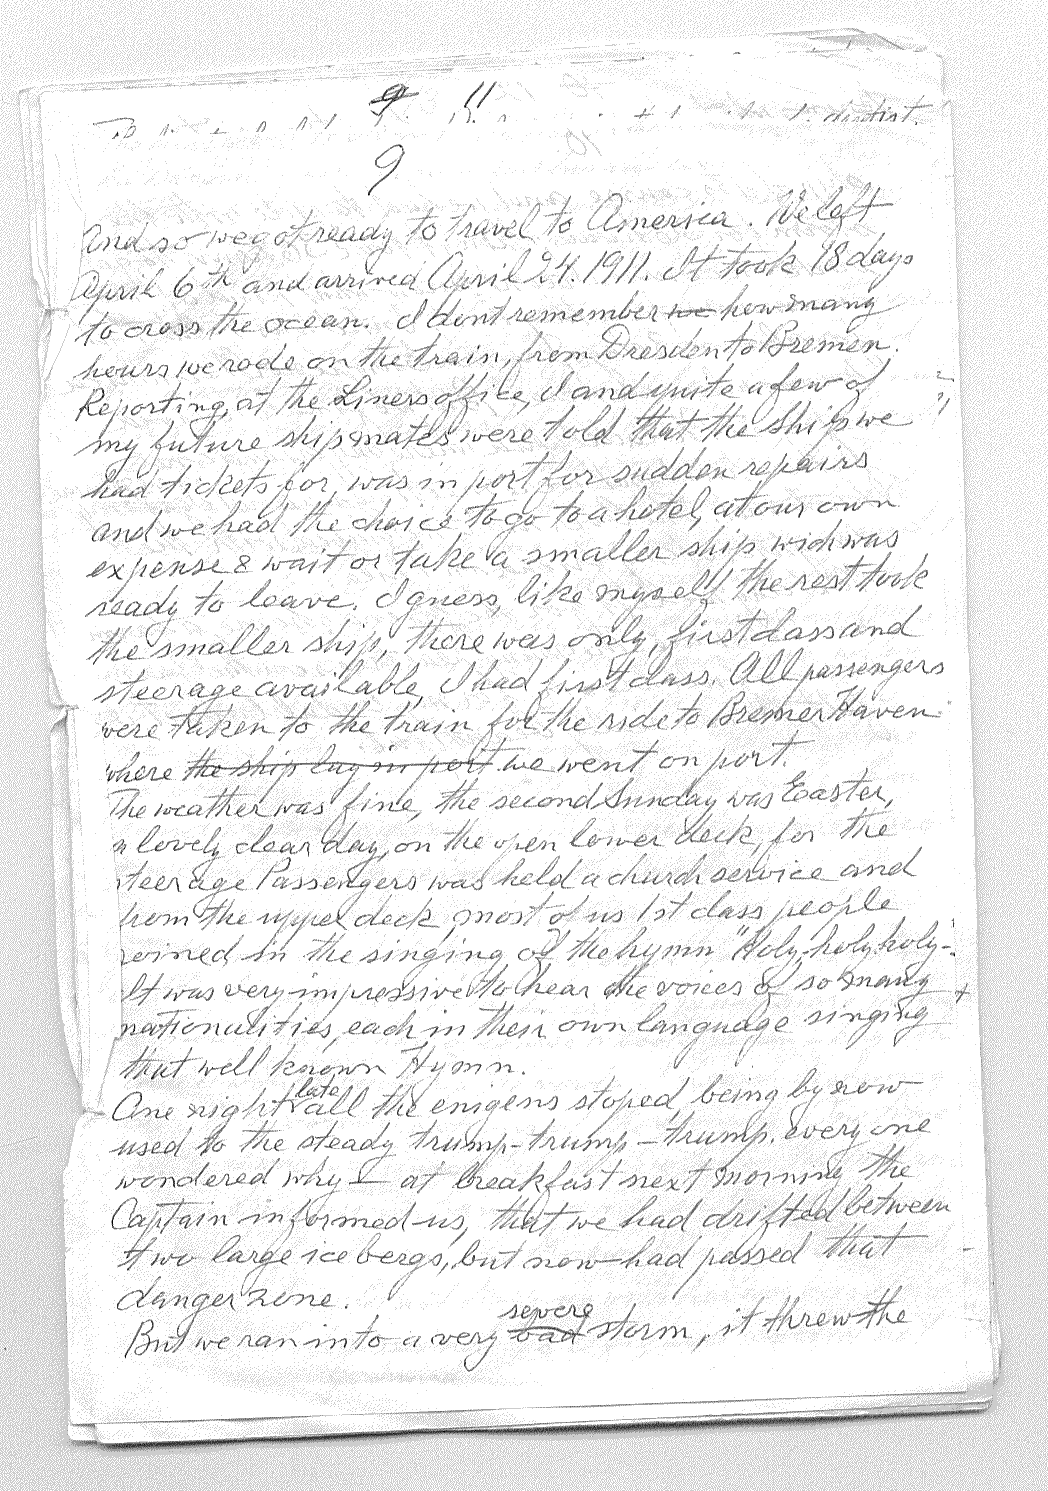 9 11
dentist.
9
And so we got ready to travel to America. We left
April 6th and arrived April 24. 1911. It took 18 days
to cross the ocean. I dont remember we how many
hours we rode on the train, from Dresden to Bremen.
Reporting, at the Liners office, I and quite a few of
my future shipmates were told that the Ship we
had tickets for, was in port for sudden repairs
and we had the choice to go to a hotel, at our own
expense & wait or take a smaller ship wich was
ready to leave. I guess, like myself the rest took
the smaller ship, there was only, first class and
steerage available, I had first class. All passengers
were taken to the train for the ride to Bremer Haven
where the ship lay in port we went on port.
The weather was fine, the second Sunday was Easter,
a lovely clear day, on the open lower deck, for the
steerage Passengers was held a church service and
from the upper deck most of us 1st class people
joined in the singing of the hymn "Holy, holy, holy-"
It was very impressive to hear the voices of so many
nationalities, each in their own language singing
that well known Hymn.
One night late all the enigens stoped, being by now
used to the steady trump-trump-trump. every one
wondered why - at breakfast next morning the
Captain informed us, that we had drifted between
two large ice bergs, but now had passed that
danger zone.
But we ran into a very bad severe storm, it threw the